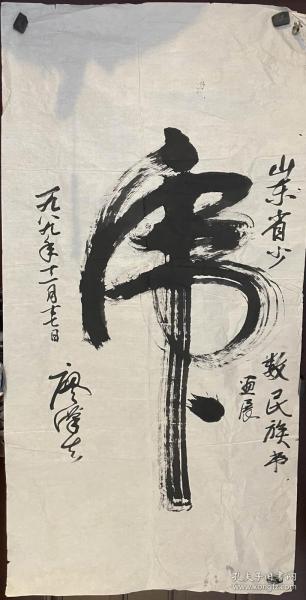 山东省少
数民族书
画展
虎
一九八九年十一月十七日
廖汉生
孔夫子旧书网
www.kongfz.com